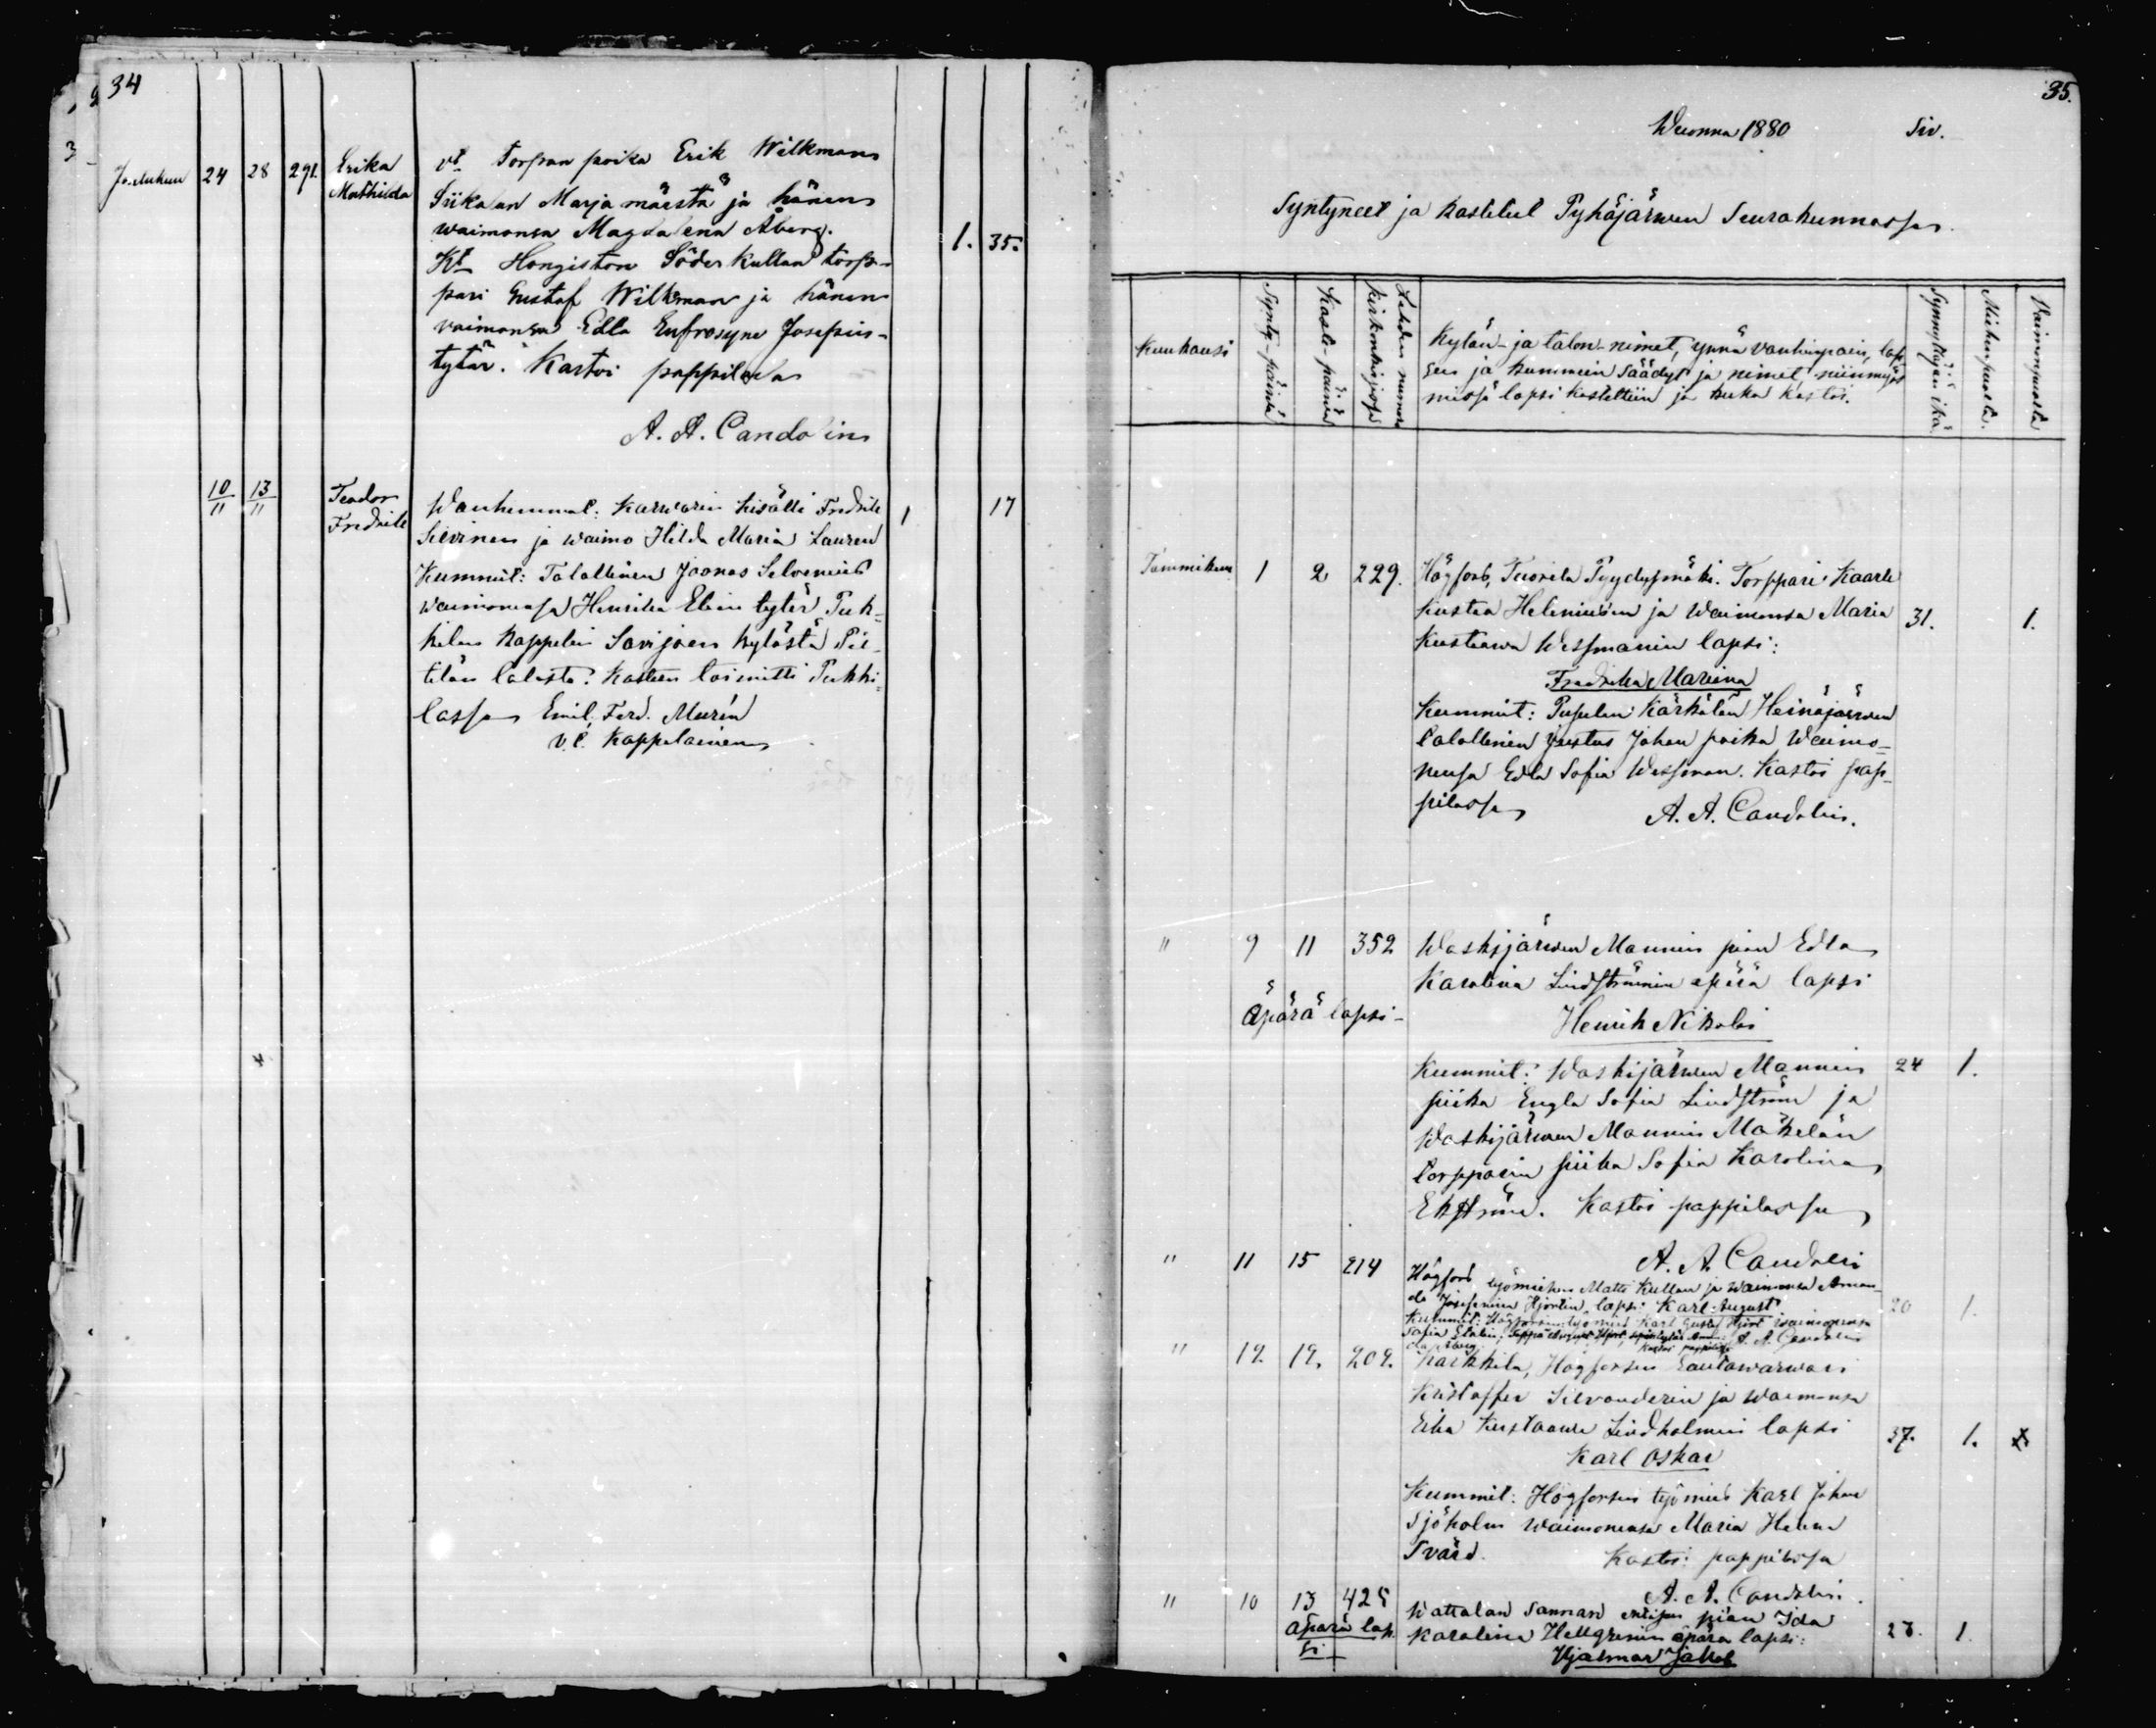 34
Joulukuu 24 28 291. Erika Mathilda
vt Torpan poika Erik Wilkman
Siikalan Marjamäestä ja hänen
waimonsa Magdalena Åberg.
Kt Hongiston Söderkullan torp-
pari Gustaf Wilkman ja hänen
vaimonsa Edla Eufrosyne Josefiin-
tytär. Kastoi pappilassa
A. A. Candolin
1. 35.
10/11 13/11 Teodor Fredrik
Wanhemmat: Karwarin kisälli Fredrik
Silvinen ja waimo Hilda Maria Lauren
Kummit: Talollinen Joonas Selvenius
waimonensa Henrika Elin tytär Puk-
kilan kappelin Savijoen kylästä
tilan talosta. Kasteen toimitti Pukki-
lassa Emil. Ferd. Murén
v.t. Kappalainen
1 17
35.
Wuonna 1880 Siv.
Syntyneet ja kastetut Pyhäjärwen Seurakunnassa.
Kuukausi
Synty-päivä
Kaste-päivä
Lehden numero kirkonkirjassa
Kylän- ja talon-nimet, ynnä vanhinpain, lap-
sen ja kummein säädyt ja nimet niinmyös
missä lapsi kastettiin ja kuka kastoi.
Synnyttäjän ikä
Miehenpuolta.
Vaimonpuolta
Tammikuu 1 2 229. Högfors, Tuorila Pyydysmäki. Torppari Kaarle
Kustaa Heleniusen ja Waimonsa Maria
Kustaawa Wessmanin lapsi: 31. 1.
Fredrika Mariina
Kummit: Pusulan Kärkölän Heinäjärwen
talollinen Justus Johan poika Waimo-
nensa Edla Sofia Wessman. Kastoi pap-
pilassa A. A. Candolin.
" 9 11 352 Waskijärwen Mannin piian Edla
Karolina Lindströmin äpärä lapsi
Äpärä lapsi- Henrik Nikolai
Kummit: Waskijärwen Mannin 24 1.
piika Engla Sofia Lindström ja
Waskijärwen Mannin Mäkelän
torpparin piika Sofia Karolina
Ekström. Kastoi pappilassa
A. A. Candolin
" 11 15 214 Högfors työmiehen Matts Kullan ja waimonsa Aman-
da Josefiinan Hjortin lapsi: Karl August 20 1.
Kummit: Högforsin työmies Karl Gustaf Hjort waimonensa
Kastoi pappilassa A. A. Candolin
" 12. 19. 209. Karkkila, Högforsin
Kristoffer Silvanderin ja waimonsa
Eika Kustaawa Lindholmin lapsi 37. 1.
Karl Oskar
Kummit: Högforsin työmies Karl Johan
Sjöholm Waimonensa Maria Helena
Svärd. Kastoi pappilassa
A. A. Candolin.
" 10 13 425 Wattolan Sannan piian Ida
Äpärä lap-
si
Karolina Hellgrenin äpärä lapsi: 23. 1.
Hjalmar Jakob